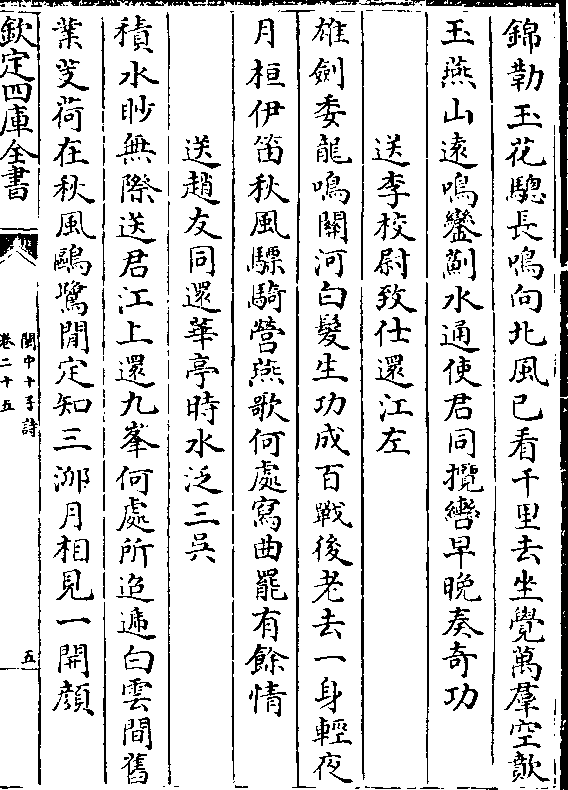 錦勒玉花驄長鳴向北風已看千里去坐覺萬羣空歕
玉燕山遠鳴鑾薊水通使君同攬轡早晚奏奇功
送李校尉致仕還江左
雄劍委龍鳴關河白髮生功成百戰後老去一身輕夜
月桓伊笛秋風驃騎營燕歌何處寫曲罷有餘情
送趙友同還華亭時水泛三吳
積水眇無際送君江上還九峯何處所迢遞白雲間舊
業芰荷在秋風鷗鷺閒定知三泖月相見一開顔
欽定四庫全書
閩中十子詩
卷二十五
五